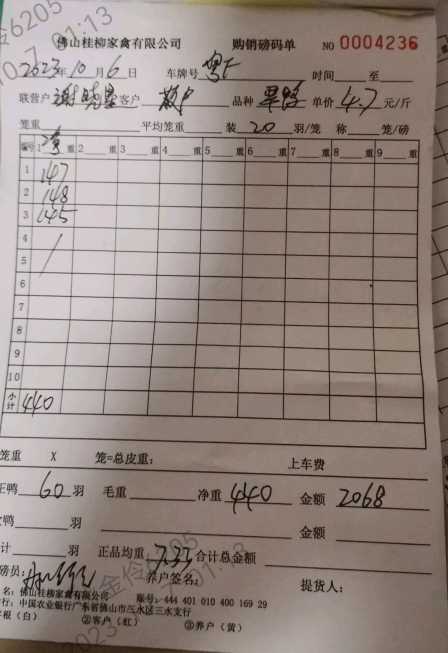 佛山桂柳家禽有限公司 购销磅码单 NO 0004236
2023年10月6日 车牌号 粤F 时间 至
联营户 客户 散户 品种 单价 4.7 元/斤
笼重 平均笼重 装 20 羽/笼 称 笼/磅
编号 1 重 2 重 3 重 4 重 5 重 6 重 7 重 8 重 9 重
1 147
2 148
3 145
4
5
6
7
8
9
10
小计 440
笼重 X 笼=总皮重: 上车费
正鸭 60 羽 毛重 净重 440 金额 2068
鸭 羽 金额
计 羽 正品均重: 7.33 合计总金额
磅员: 养户签名: 提货人:
名: 佛山桂柳家禽有限公司 账号: 444 401 010 400 169 29
行: 中国农业银行广东省佛山市三水区三水支行
存根(白) ②客户(红) ③养户(黄)
金伶6205
10.7 01:13
金伶6205
01:13
2023